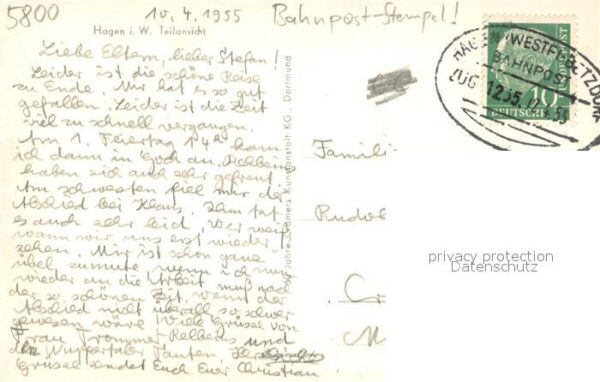 5800
10.4.1955 Bahnpost-Stempel!
Hagen i. W. Teilansicht
Liebe Eltern, lieber Stefan!
Leider ist die schöne Reise
zu Ende. Mir hat es so gut
gefallen. Leider ist die Zeit
viel zu schnell vergangen.
Am 1. Feiertag 14h kam
ich dann in an. Rehbeins
haben sich auch sehr gefreut.
Am schwersten fiel mir der
Abschied bei Klaus. Ihm tat
es auch sehr leid. Wer weiß
wann wir uns erst wieder
sehen. Mir ist schon ganz
übel zumute wenn ich nun
wieder an die Arbeit muß nach
der so schönen Zeit, wenn der
Abschied nicht überall so schwer
gewesen wäre. Viele Grüsse von
Frau Trommer, Rehbeins und
den Wuppertaler Tanten.
Grüsse sendet Euch Euer Christian
Cramers Kunstanstalt KG · Dortmund
HAGEN (WESTF)-BETZDORF
BAHNPOST
ZUG 1235
10
DEUTSCHE BUNDESPOST
Famili
Rudol
privacy protection
Datenschutz